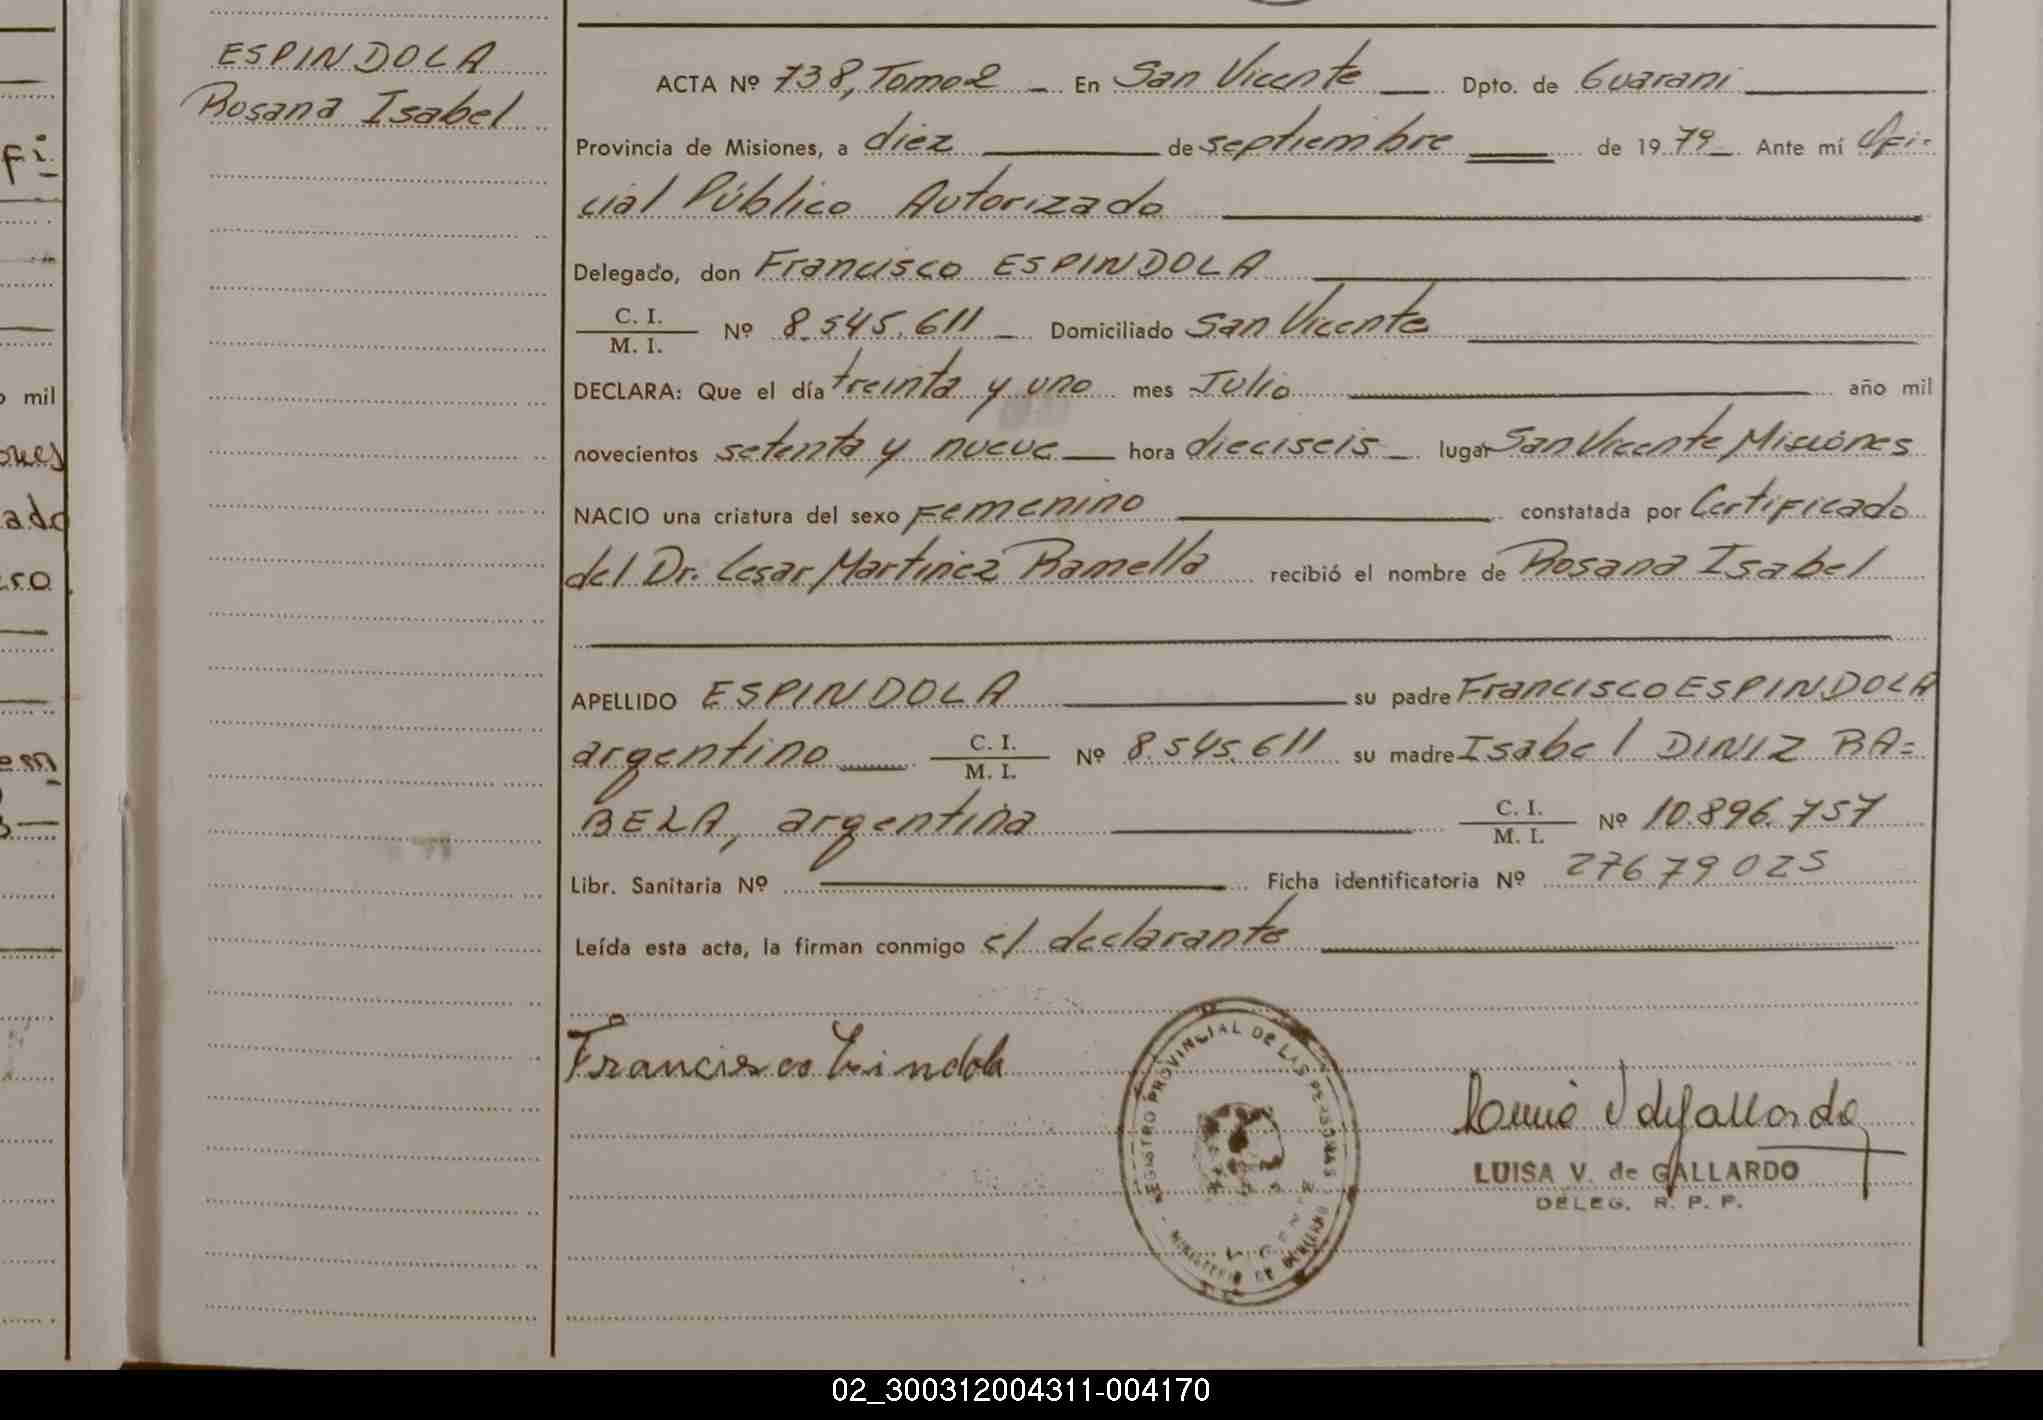 ESPINDOLA
Rosana Isabel
ACTA Nº 738, Tomo 2 — En San Vicente Dpto. de Guaraní
Provincia de Misiones, a diez de septiembre de 1979 Ante mí Ofi-
cial Público Autorizado
Delegado, don Francisco ESPINDOLA
C. I.
M. I. Nº 8.545.611 — Domiciliado San Vicente
DECLARA: Que el día treinta y uno mes Julio año mil
novecientos setenta y nueve hora dieciseis lugar San Vicente, Misiones
NACIO una criatura del sexo Femenino constatada por Certificado
del Dr. Cesar Martinez Ramella recibió el nombre de Rosana Isabel
APELLIDO ESPINDOLA su padre Francisco ESPINDOLA
argentino C. I.
M. I. Nº 8.545.611 su madre Isabel DINIZ RA=
BELA, argentina C. I.
M. I. Nº 10.896.757
Libr. Sanitaria Nº Ficha identificatoria Nº 27679025
Leída esta acta, la firman conmigo el declarante
REGISTRO PROVINCIAL DE LAS PERSONAS
MINISTERIO DE GOBIERNO
LUISA V. de GALLARDO
DELEG. R. P. P.
fi
o mil
ones
ado
02_300312004311-004170